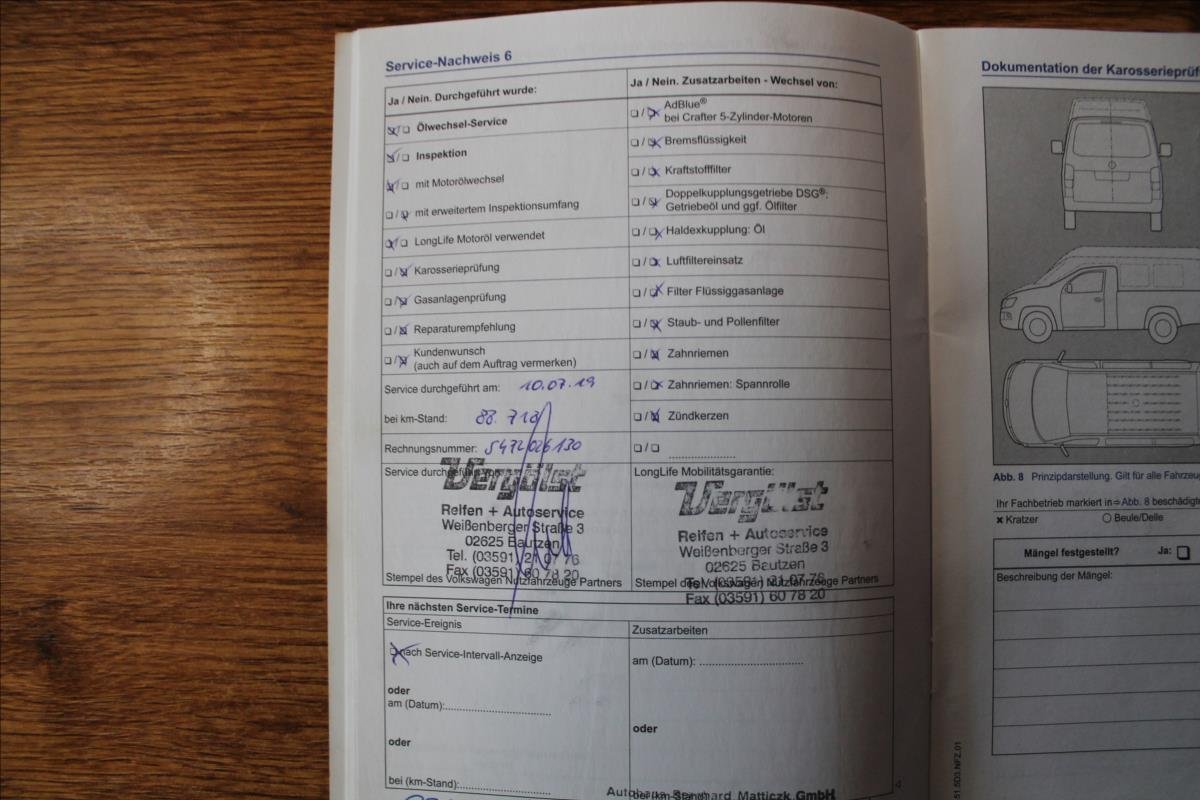 Service-Nachweis 6
Ja / Nein. Durchgeführt wurde:
Ölwechsel-Service
Inspektion
mit Motorölwechsel
mit erweitertem Inspektionsumfang
LongLife Motoröl verwendet
Karosserieprüfung
Gasanlagenprüfung
Reparaturempfehlung
Kundenwunsch
(auch auf dem Auftrag vermerken)
Service durchgeführt am: 10.07.19
bei km-Stand: 88.718
Rechnungsnummer: 5472026130
Service durchgeführt von:
Vergölst
Reifen + Autoservice
Weißenberger Straße 3
02625 Bautzen
Tel. (03591) 21 07 76
Fax (03591) 60 78 20
Stempel des Volkswagen Nutzfahrzeuge Partners
Ja / Nein. Zusatzarbeiten - Wechsel von:
AdBlue®
bei Crafter 5-Zylinder-Motoren
Bremsflüssigkeit
Kraftstofffilter
Doppelkupplungsgetriebe DSG®:
Getriebeöl und ggf. Ölfilter
Haldexkupplung: Öl
Luftfiltereinsatz
Filter Flüssiggasanlage
Staub- und Pollenfilter
Zahnriemen
Zahnriemen: Spannrolle
Zündkerzen
LongLife Mobilitätsgarantie:
Vergölst
Reifen + Autoservice
Weißenberger Straße 3
02625 Bautzen
Tel. (03591) 21 07 76
Fax (03591) 60 78 20
Stempel des Volkswagen Nutzfahrzeuge Partners
Ihre nächsten Service-Termine
Service-Ereignis
nach Service-Intervall-Anzeige
oder
am (Datum):
oder
bei (km-Stand):
Zusatzarbeiten
am (Datum):
oder
bei (km-Stand):
Autohaus Matticzk GmbH
4
Dokumentation der Karosserieprüf
Abb. 8 Prinzipdarstellung. Gilt für alle Fahrzeug
Ihr Fachbetrieb markiert in ⇒ Abb. 8 beschädig
Kratzer Beule/Delle
Mängel festgestellt? Ja:
Beschreibung der Mängel:
51.5D3.NFZ.01